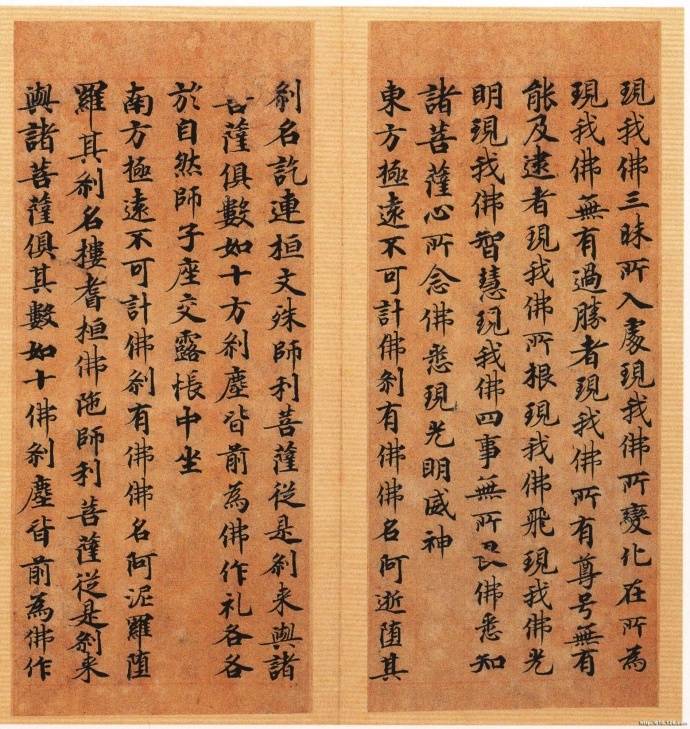 現我佛三昧所入處現我佛所變化在所為
現我佛無有過勝者現我佛所有尊号無有
能及逮者現我佛所根現我佛飛現我佛光
明現我佛智慧現我佛四事無所畏佛悉知
諸菩薩心所念佛悉現光明威神
東方極遠不可計佛剎有佛佛名阿逝堕其
剎名訖連桓文殊師利菩薩從是剎来與諸
菩薩俱數如十方剎塵皆前為佛作礼各各
於自然師子座交露帳中坐
南方極遠不可計佛剎有佛佛名阿泥羅堕
羅其剎名樓耆桓佛陁師利菩薩從是剎来
與諸菩薩俱其數如十佛剎塵皆前為佛作